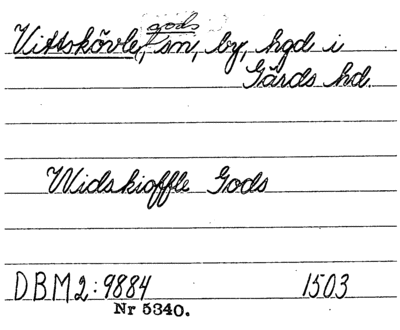 Vittskövle, gods, sn, by, hgd i
Gärds hd.
Widskioffle Gods
DBM2:9884 1503
Nr 5340.